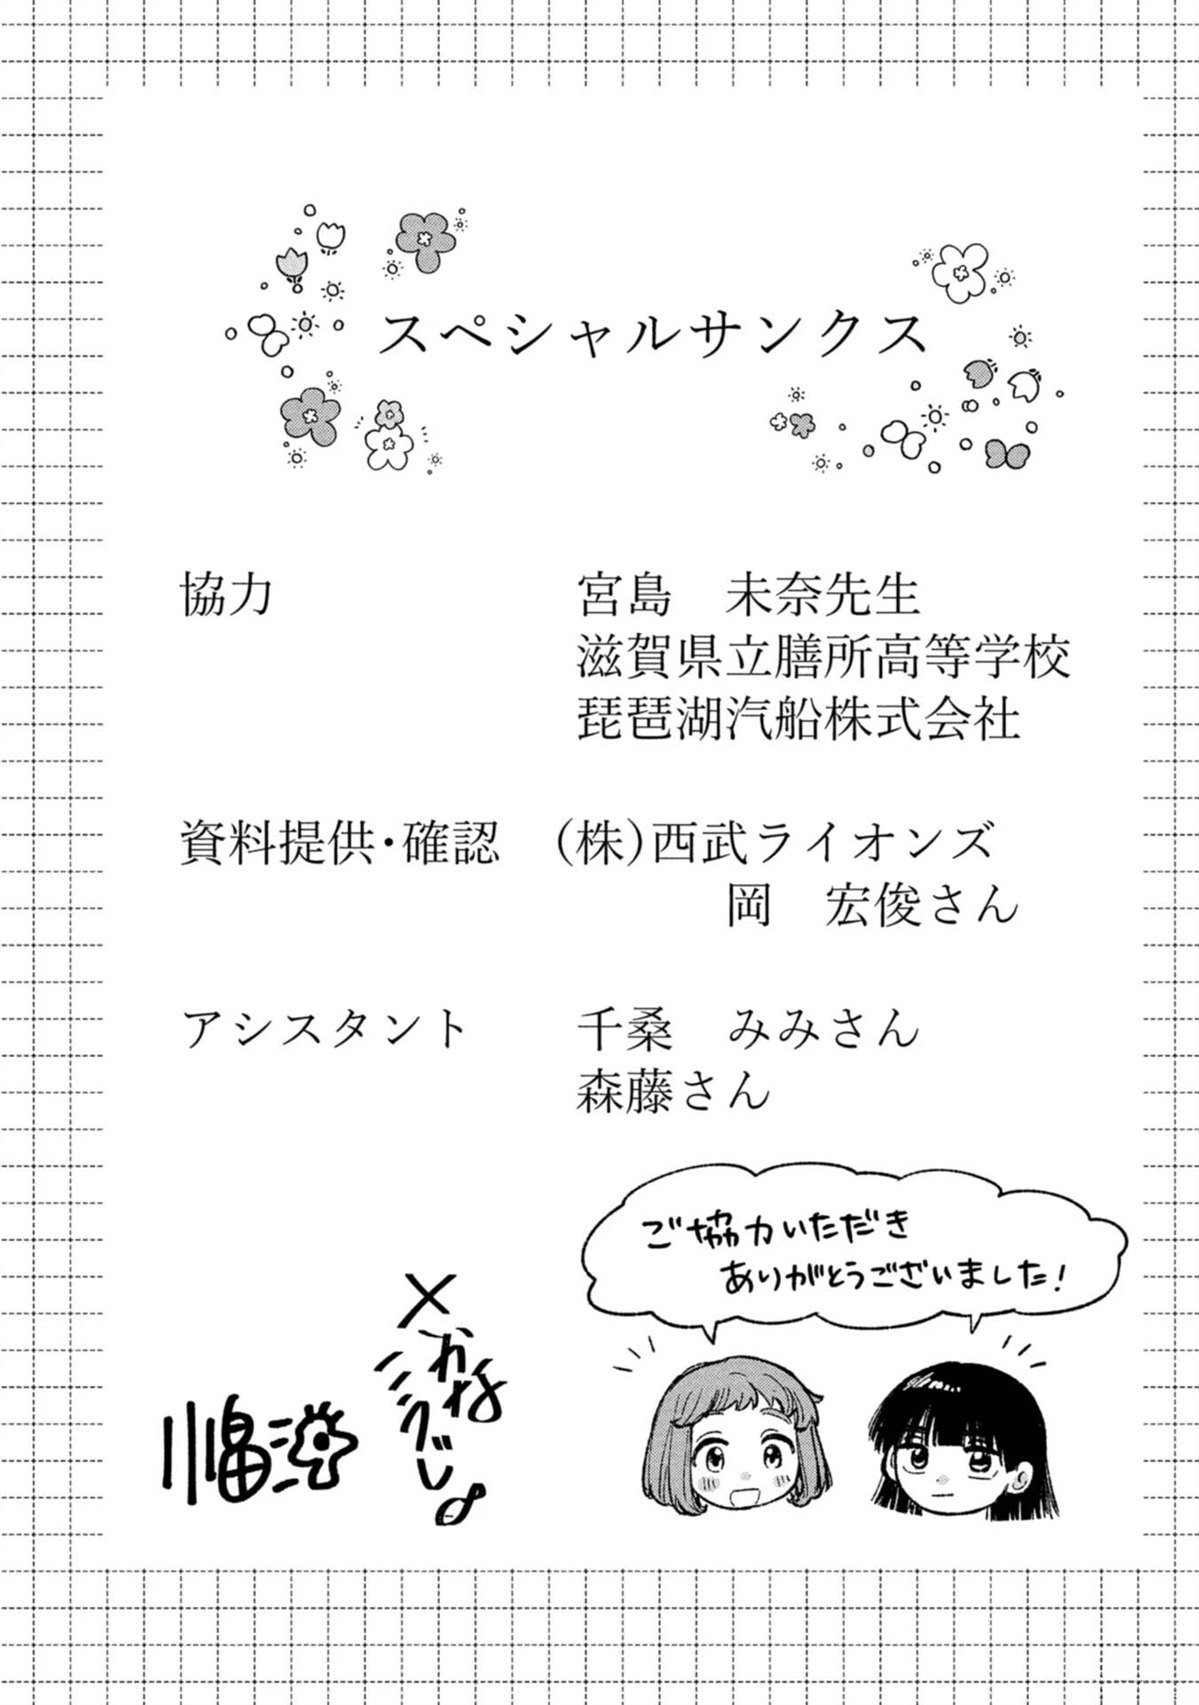 スペシャルサンクス
協力　宮島　未奈先生
滋賀県立膳所高等学校
琵琶湖汽船株式会社
資料提供・確認　(株)西武ライオンズ
岡　宏俊さん
アシスタント　千桑　みみさん
森藤さん
ご協力いただき
ありがとうございました!
×